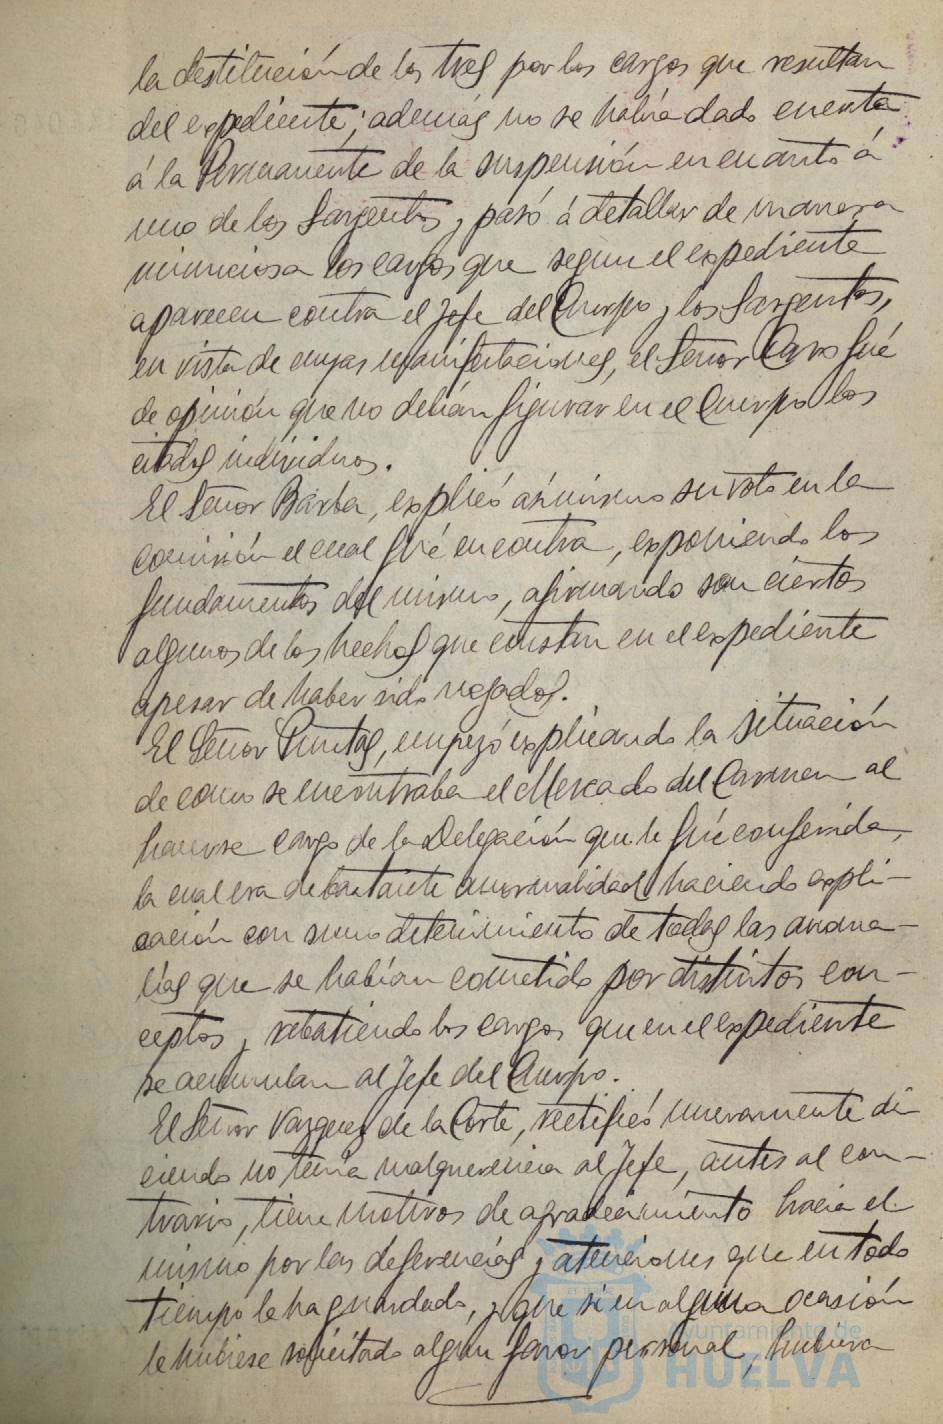 la destitución de los tres por los cargos que resultan
del expediente; además no se había dado cuenta
á la Permanente de la suspensión en cuanto á
uno de los Sargentos, y pasó á detallar de manera
minuciosa los cargos que segun el expediente
aparecen contra el Jefe del Cuerpo y los Sargentos,
en vista de cuyas manifestaciones, el Señor Caro fué
de opinión que no debían figurar en el Cuerpo los
citados individuos.
El Señor Barba, explicó asimismo su voto en la
comisión el cual fué en contra, exponiendo los
fundamentos del mismo, afirmando son ciertos
algunos de los hechos que constan en el expediente
apesar de haber sido negados.
El Señor Puntas, empezó explicando la situación
de como se encontraba el Mercado del Carmen al
hacerse cargo de la Delegación que le fué conferida,
la cual era de bastante anormalidad haciendo expli-
cación con sumo detenimiento de todas las anoma-
lías que se habían cometido por distintos con-
ceptos y rebatiendo los cargos que en el expediente
se acumulan al Jefe del Cuerpo.
El Señor Vazquez de la Corte, rectificó nuevamente di-
ciendo no tenia malquerencia al Jefe, antes al con-
trario, tiene motivos de agradecimiento hacia el
mismo por las deferencias y atenciones que en todo
tiempo le ha guardado, y que si en alguna ocasión
le hubiese solicitado algun favor personal, hubiera
Ayuntamiento de
HUELVA